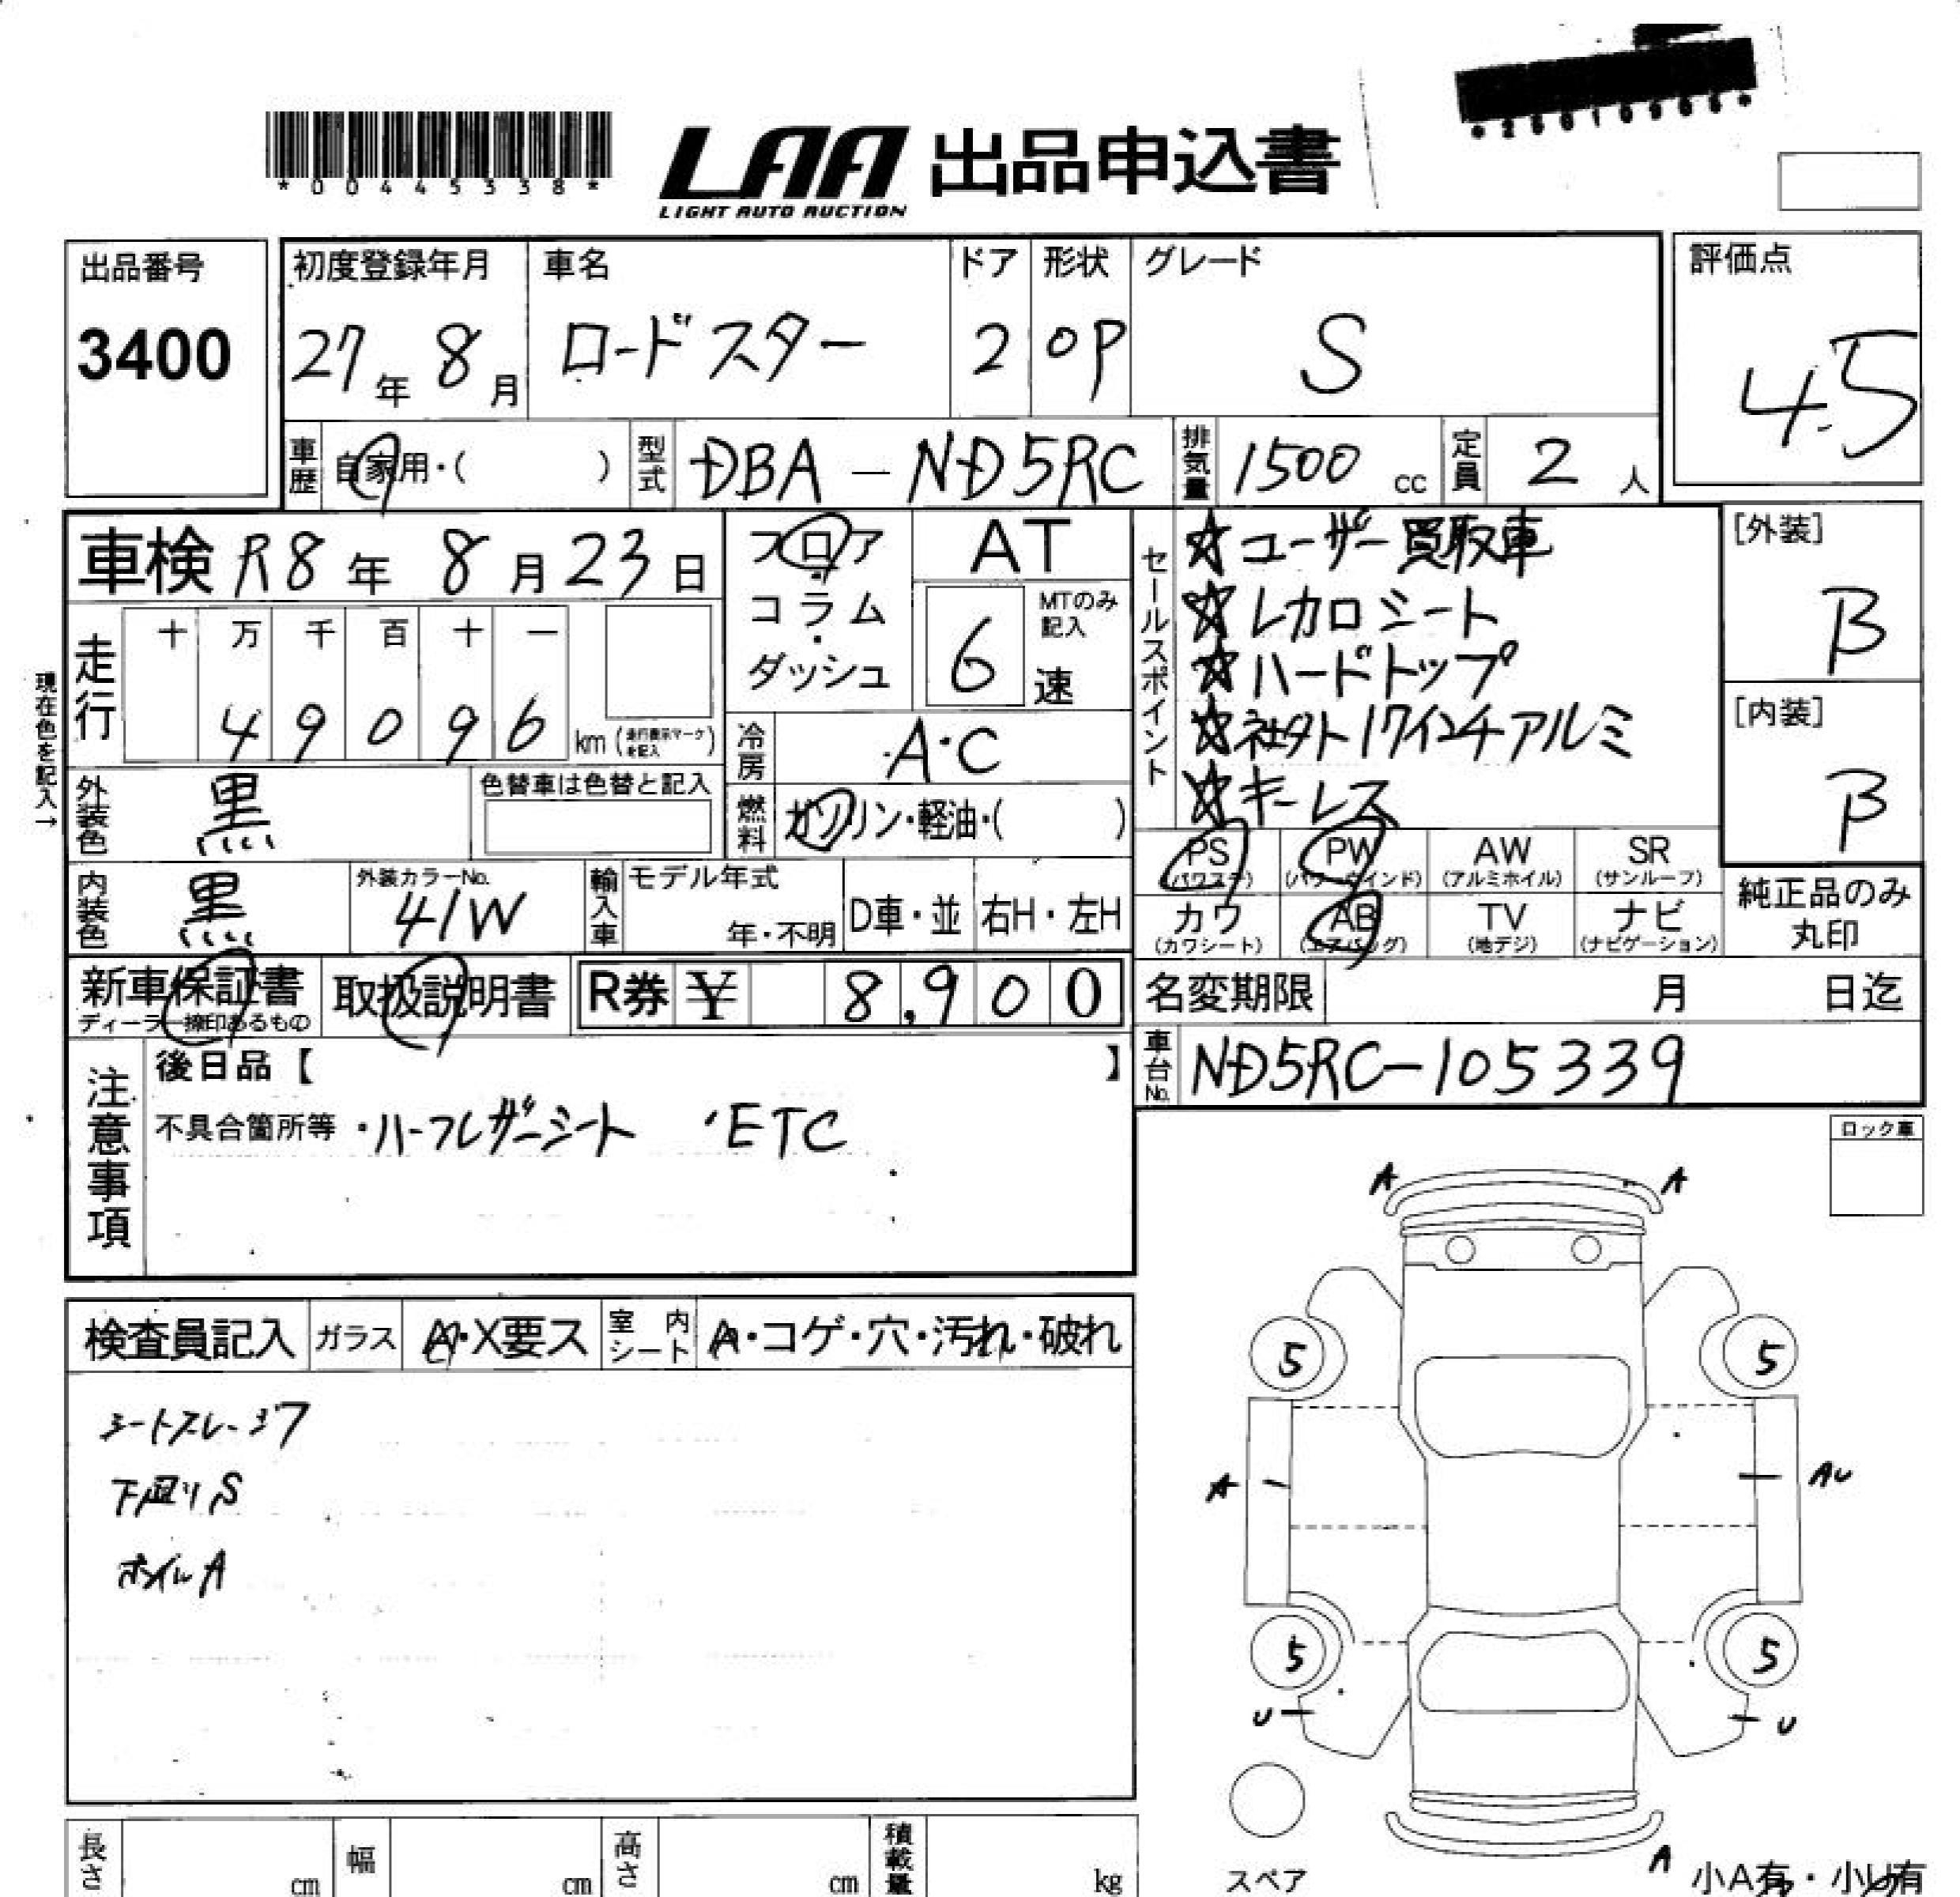 *00445338*
LAA 出品申込書
LIGHT AUTO AUCTION
出品番号
3400
初度登録年月
27年 8月
車名
ロードスター
ドア
2
形状
OP
グレード
S
評価点
4.5
車歴
自家用・( )
型式
DBA-ND5RC
排気量
1500 cc
定員
2 人
車検 R8年 8月23日
フロア
・
コラム
・
ダッシュ
AT
6
MTのみ記入
速
セールスポイント
☆ユーザー買取車
☆レカロシート
☆ハードトップ
☆社外17インチアルミ
☆キーレス
[外装]
B
[内装]
B
現在色を記入→
走行
十 万 千 百 十 一
4 9 0 9 6 km (走行表示マークを記入)
冷房
A・C
外装色
黒
色替車は色替と記入
燃料
ガソリン・軽油・( )
PS
(パワステ)
PW
(パワーウインド)
AW
(アルミホイル)
SR
(サンルーフ)
内装色
黒
外装カラーNo.
41W
輸入車
モデル年式
年・不明
D車・並
右H・左H
カワ
(カワシート)
AB
(エアバッグ)
TV
(地デジ)
ナビ
(ナビゲーション)
純正品のみ
丸印
新車保証書
ディーラー捺印あるもの
取扱説明書
R券 ¥ 8,900
名変期限 月 日迄
車台No.
ND5RC-105339
注意事項
後日品【 】
不具合箇所等 ・ハーフレザーシート ・ETC
ロック車
A A
検査員記入
ガラス
A・X要ス
室内シート
A・コゲ・穴・汚れ・破れ
シートスレ・シワ
下廻りS
ホイルA
5 5
A AU
5 5
U U
スペア
A
小A有・小U有
長さ cm
幅 cm
高さ cm
積載量 kg